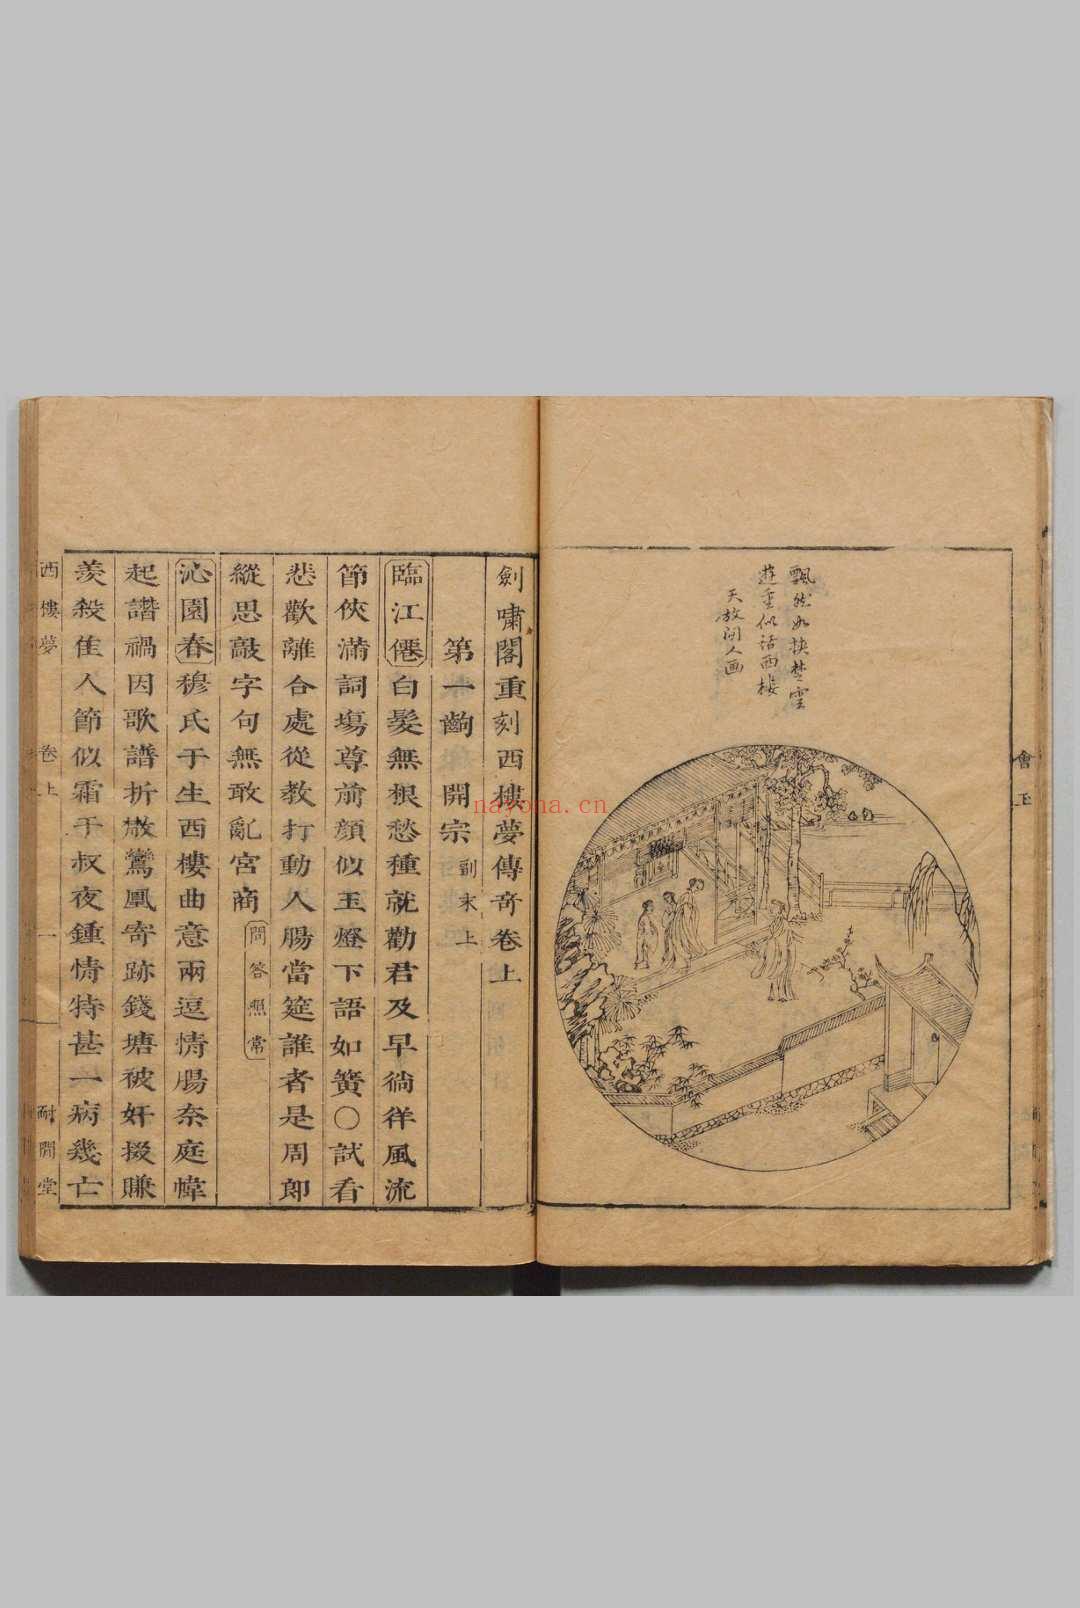 飄然如挾楚雲
遊重似話西樓
天放閒人画
會玉
劍嘯閣重刻西樓夢傳奇卷上
第一齣 開宗 副末上
臨江僊白髮無根愁種就勸君及早徜徉風流
節俠滿詞塲尊前顔似玉燈下語如簧○試看
悲歡離合處從教打動人腸當筵誰者是周郎
縱思敲字句無敢亂宮商 問答照常
沁園春穆氏于生西樓曲意兩逗情腸奈庭幃
起譖禍因歌譜折散鸞凰寄跡錢塘被奸掇賺
羨殺隹人節似霜于叔夜鍾情特甚一病幾亡
西樓夢 卷上 一 耐閒堂
navona.cn